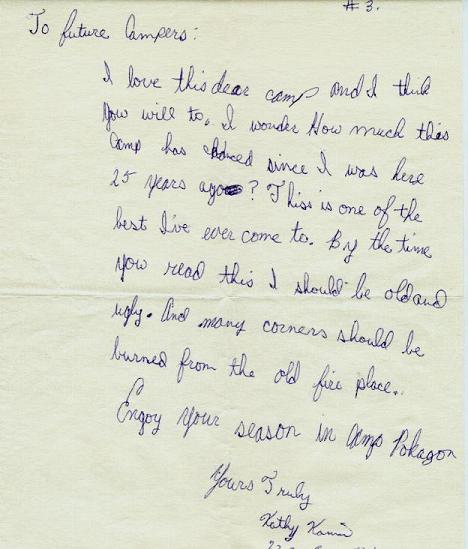 # 3.
To future Campers:
I love this dear camp and I think
you will to. I wonder How much this
Camp has since I was here
25 years ago ? Thiss is one of the
best I've ever come to. By the time
you read this I should be old and
ugly. And many corners should be
burned from the old fire place.
Engoy your season in Camp Pokagon
Yours Truly
Kathy